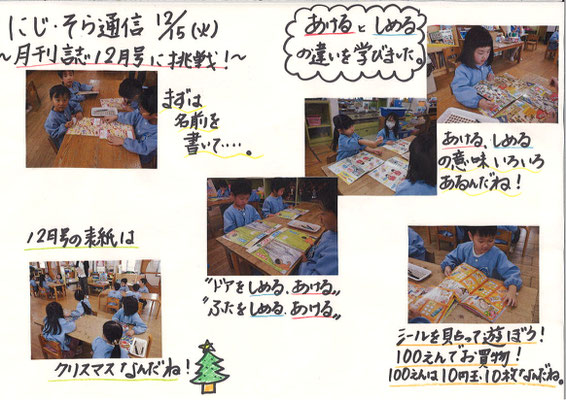 にじ・そら通信 12/15(火)
～月刊誌12月号に挑戦！～
まずは
名前を
書いて‥‥。
あけるとしめる
の違いを学びました。
あける、しめる
の意味いろいろ
あるんだね！
12月号の表紙は
クリスマスなんだね！
"ドアをしめる、あける"
"ふたをしめる、あける"
シールを貼って遊ぼう！
100えんでお買物！
100えんは10円玉10枚なんだね。